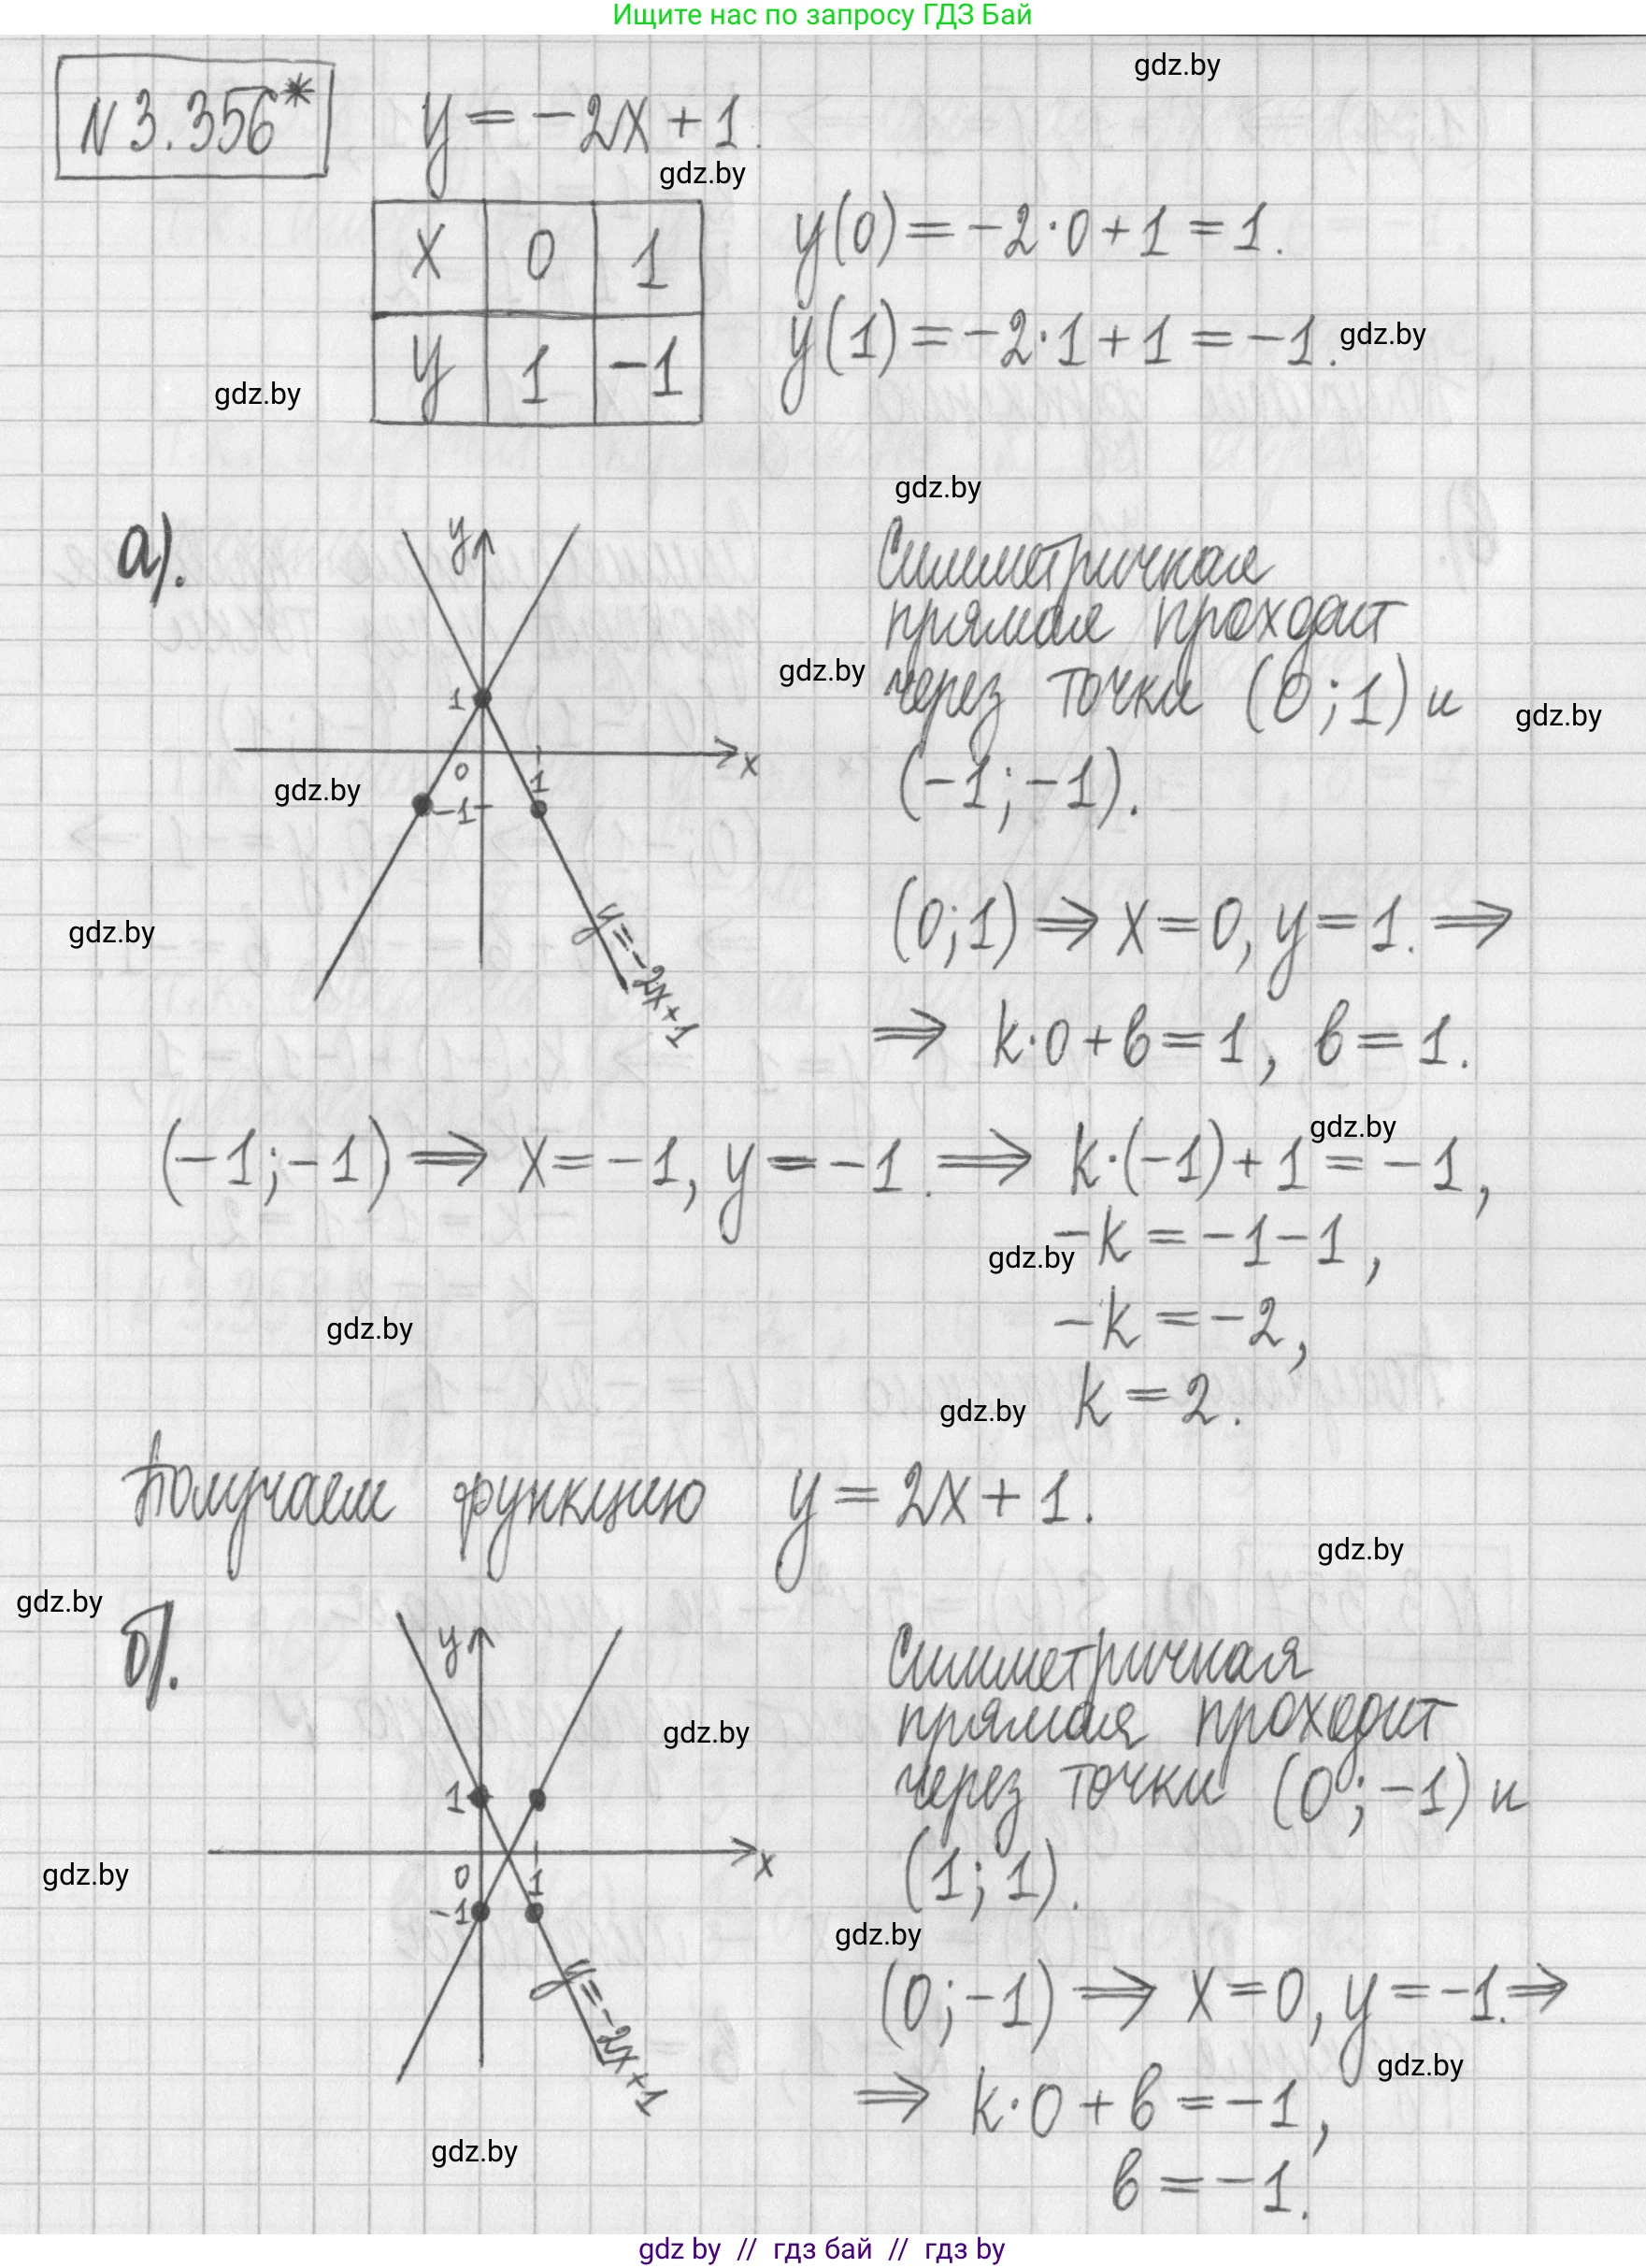 Ищите нас по запросу ГДЗ Бай
gdz.by
N 3.356*
y = -2x + 1.
gdz.by
x 0 1
y 1 -1
y(0) = -2·0 + 1 = 1.
y(1) = -2·1 + 1 = -1.
gdz.by
gdz.by
gdz.by
а).
y
1
0
1
x
-1
y=-2x+1
Симметричная
прямая проходит
через точки (0;1) и
(-1;-1).
gdz.by
gdz.by
gdz.by
gdz.by
(0;1) ⇒ x=0, y=1. ⇒
⇒ k·0+b=1, b=1.
gdz.by
(-1;-1) ⇒ x=-1, y=-1. ⇒ k·(-1)+1=-1,
gdz.by
-k=-1-1,
gdz.by
-k=-2,
gdz.by
k=2.
Получаем функцию y=2x+1.
gdz.by
gdz.by
б).
y
1
0
1
x
-1
y=-2x+1
Симметричная
прямая проходит
через точки (0;-1) и
(1;1).
gdz.by
gdz.by
gdz.by
(0;-1) ⇒ x=0, y=-1. ⇒
gdz.by
⇒ k·0+b=-1,
gdz.by
b=-1.
gdz by // гдз бай // гдз by